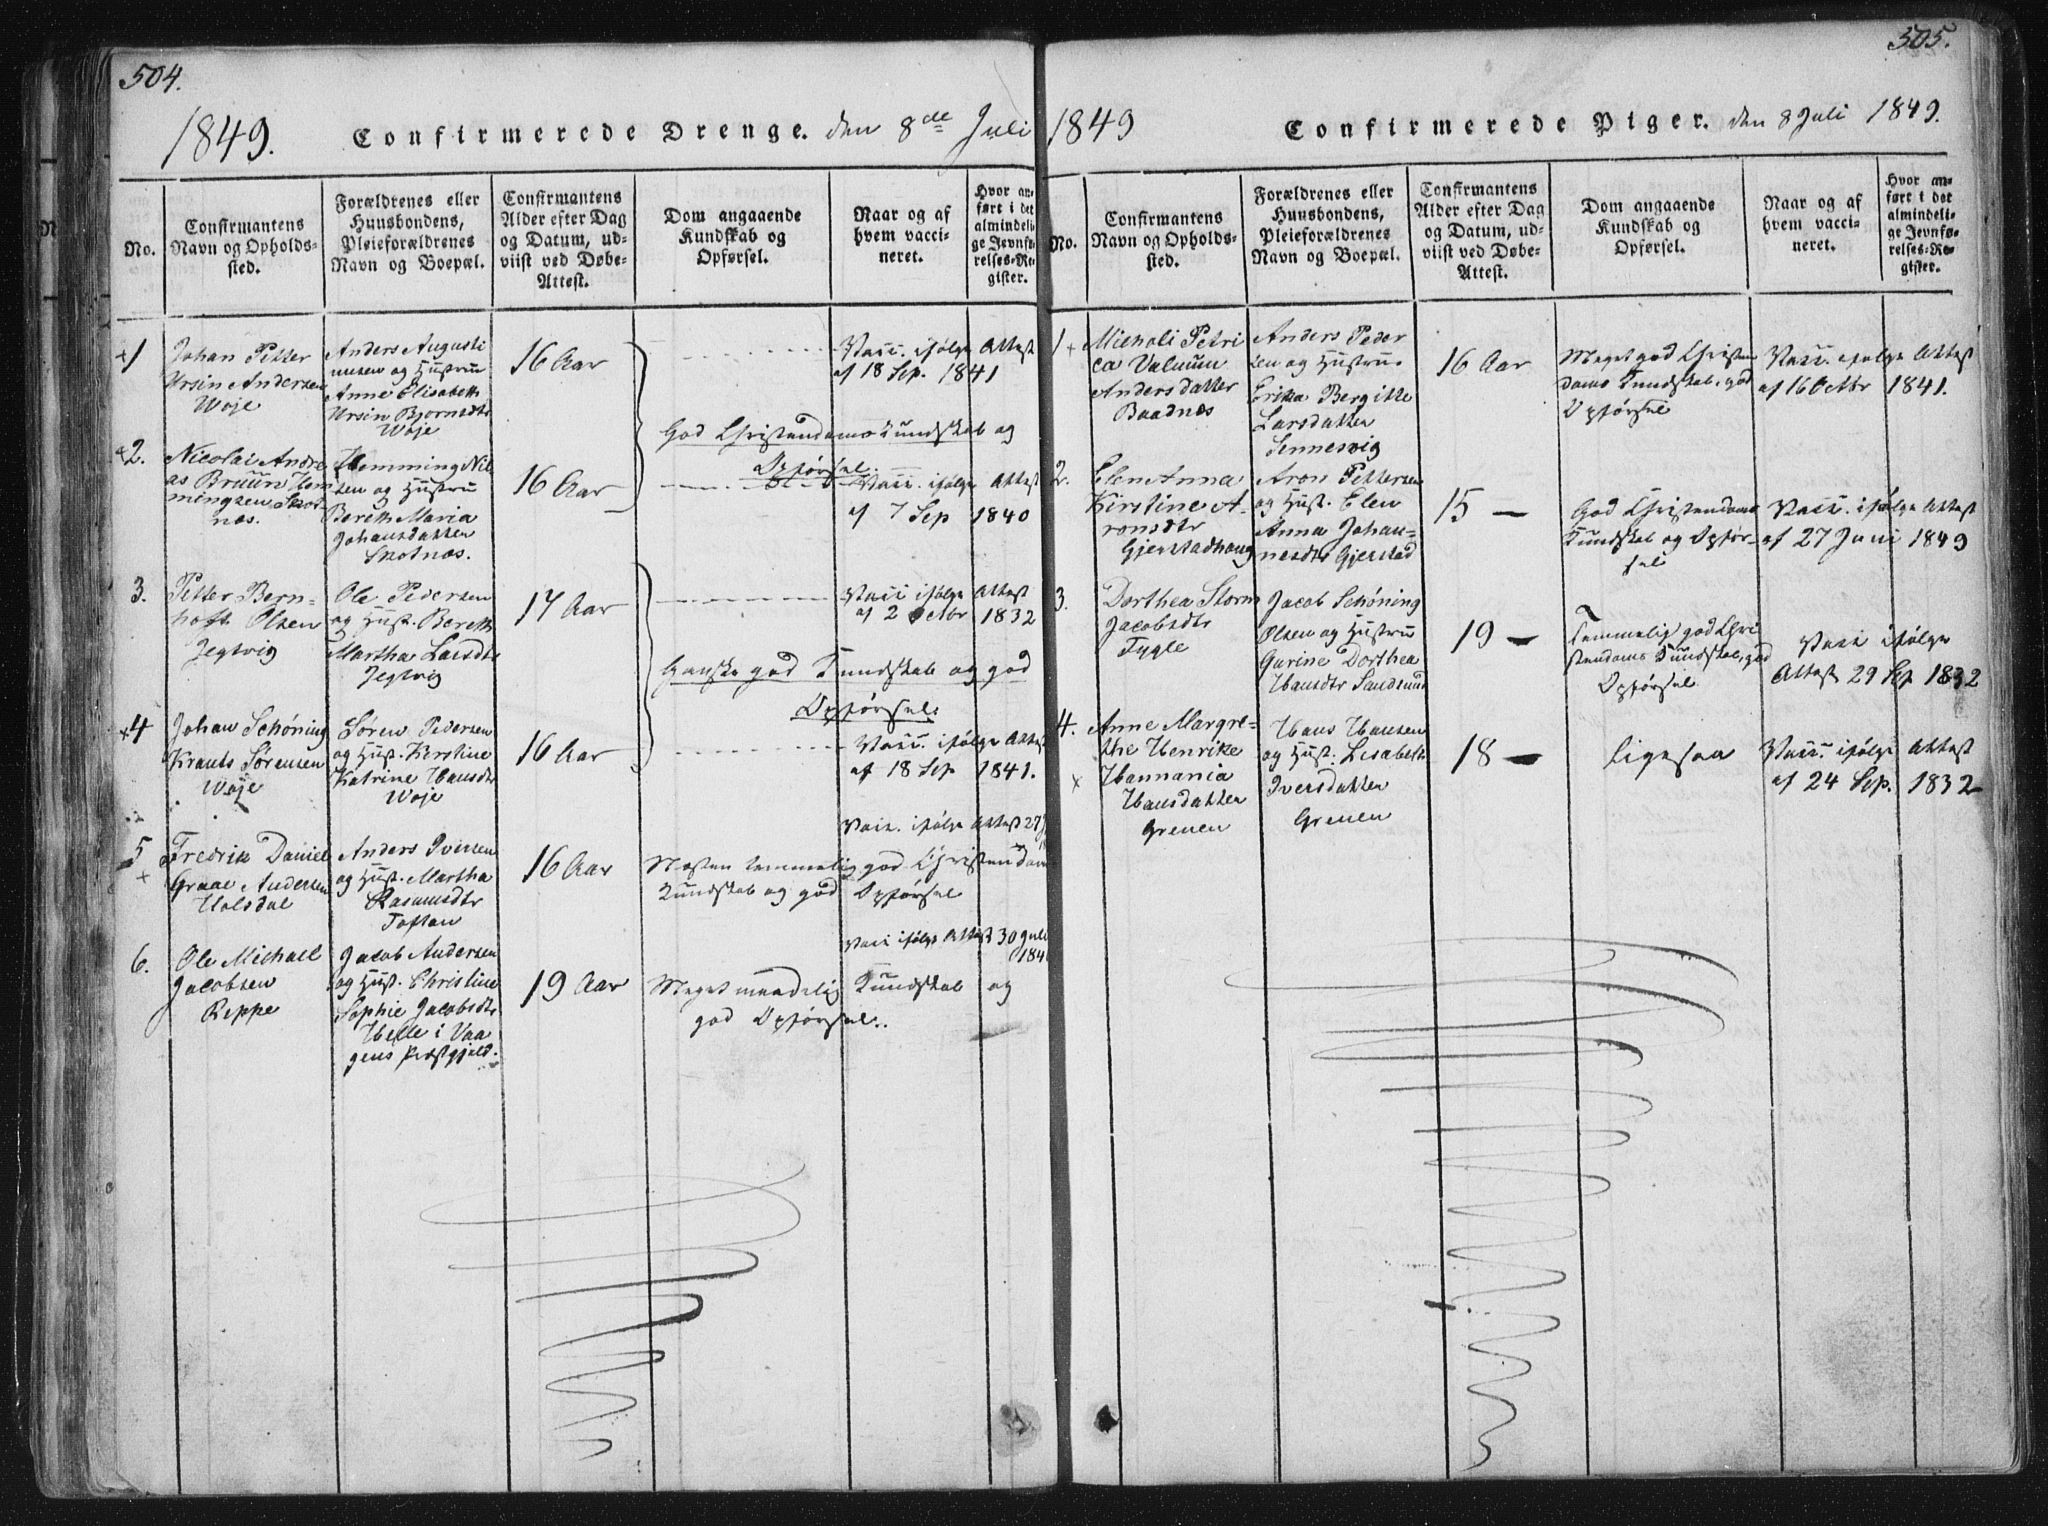 504.
1849. Confirmerede Drenge. den 8de Juli
No.
Confirmantens Navn og Opholds-sted.
Forældrenes eller Huusbondens, Pleieforældrenes Navn og Boepæl.
Confirmantens Alder efter Dag og Datum, ud-viist ved Døbe-Attest.
Dom angaaende Kundskab og Opførsel.
Naar og af hvem vacci-neret.
Hvor an-ført i det almindeli-ge Jevnfø-relses-Re-gister.
1
Johan Petter
Ursin Andersen
Woje
Anders Augusti
nusen og Hustru
Anne Elisabeth
Ursin Bjornsdtr
Woje
16 Aar
Vacc. ifølge Attest
af 18 Sep. 1841
God Christendomskundskab og
Opførsel.
2.
Nicolai Andre
as Bruun Hem
mingsen Skot
næs.
Hemming Nil
sen og Hustru
Bereth Maria
Johansdatter
Skotnæs.
16 Aar
Vacc. ifølge Attest
af 7 Sep 1840
3.
Petter Bern-
hoft Olsen
Jegtvig
Ole Pedersen
og Hust. Bereth
Martha Larsdtr
Jegtvig
17 Aar
Vacc ifølge Attest
af 2 Octbr 1832
Ganske god Kundskab og god
Opførsel.
4
Johan Schøning
Krauts Sørensen
Woje
Søren Pedersen
og Hust. Kerstine
Katrine Hansdtr
Woje
16 Aar
Vacc. ifølge Attest
af 18 Sep 1841.
5
Fredrik Daniel
Graae Andersen
Holsdal
Anders Iversen
og Hust. Martha
Rasmusdtr
Toften
16 Aar
Vacc. ifølge Attest 27
Næsten temmelig god Christendoms
Kundskab og god Opførsel
6.
Ole Michael
Jacobsen
Reppe
Jacob Andersen
og Hust. Christine
Sophie Jacobsdtr
Helle i Vaa
gens Præstgjeld.
19 Aar
Vacc ifølge Attest 30 Juli
184
Meget maadelig Kundskab og
god Opførsel.
505.
1849 Confirmerede Piger. den 8 Juli 1849.
No.
Confirmantens Navn og Opholds-sted.
Forældrenes eller Huusbondens, Pleieforældrenes Navn og Boepæl.
Confirmantens Alder efter Dag og Datum, ud-viist ved Døbe-Attest.
Dom angaaende Kundskab og Opførsel.
Naar og af hvem vacci-neret.
Hvor an-ført i det almindeli-ge Jevnfø-relses-Re-gister.
1
Micholi Petri
ca Valuum
Andersdatter
Baadnæs
Anders Peder
sen og Hustru
Erika Bergitte
Larsdatter
Sennesvig
16 Aar
Meget god Christen
doms Kundskab, god
Opførsel
Vacc. ifølge Attest
af 16 Octbr 1841.
2.
Elen Anna
Kirstine A-
ronsdtr
Gjerstadhaug
Aron Pettersen
og Hust. Elen
Anna Johan-
nesdtr Gjerstad
15 —
God Christendoms
Kundskab og Opfør-
sel
Vacc. ifølge Attest
af 27 Juni 1849
3.
Dorthea Storm
Jacobsdtr
Tygle
Jacob Schøning
Olsen og Hustru
Gurine Dorthea
Hansdtr Sandsund
19 —
Temmelig god Chri
stendoms Kundskab, god
Opførsel
Vacc ifølge
Attest 29 Sep 1832
4.
Anne Margre-
the Henrike
Hannania
Hansdatter
Grenen
Hans Hansen
og Hust. Lisabeth
Iversdatter
Grenen
18 —
ligesaa
Vacc. ifølge Attest
af 24 Sep. 1832